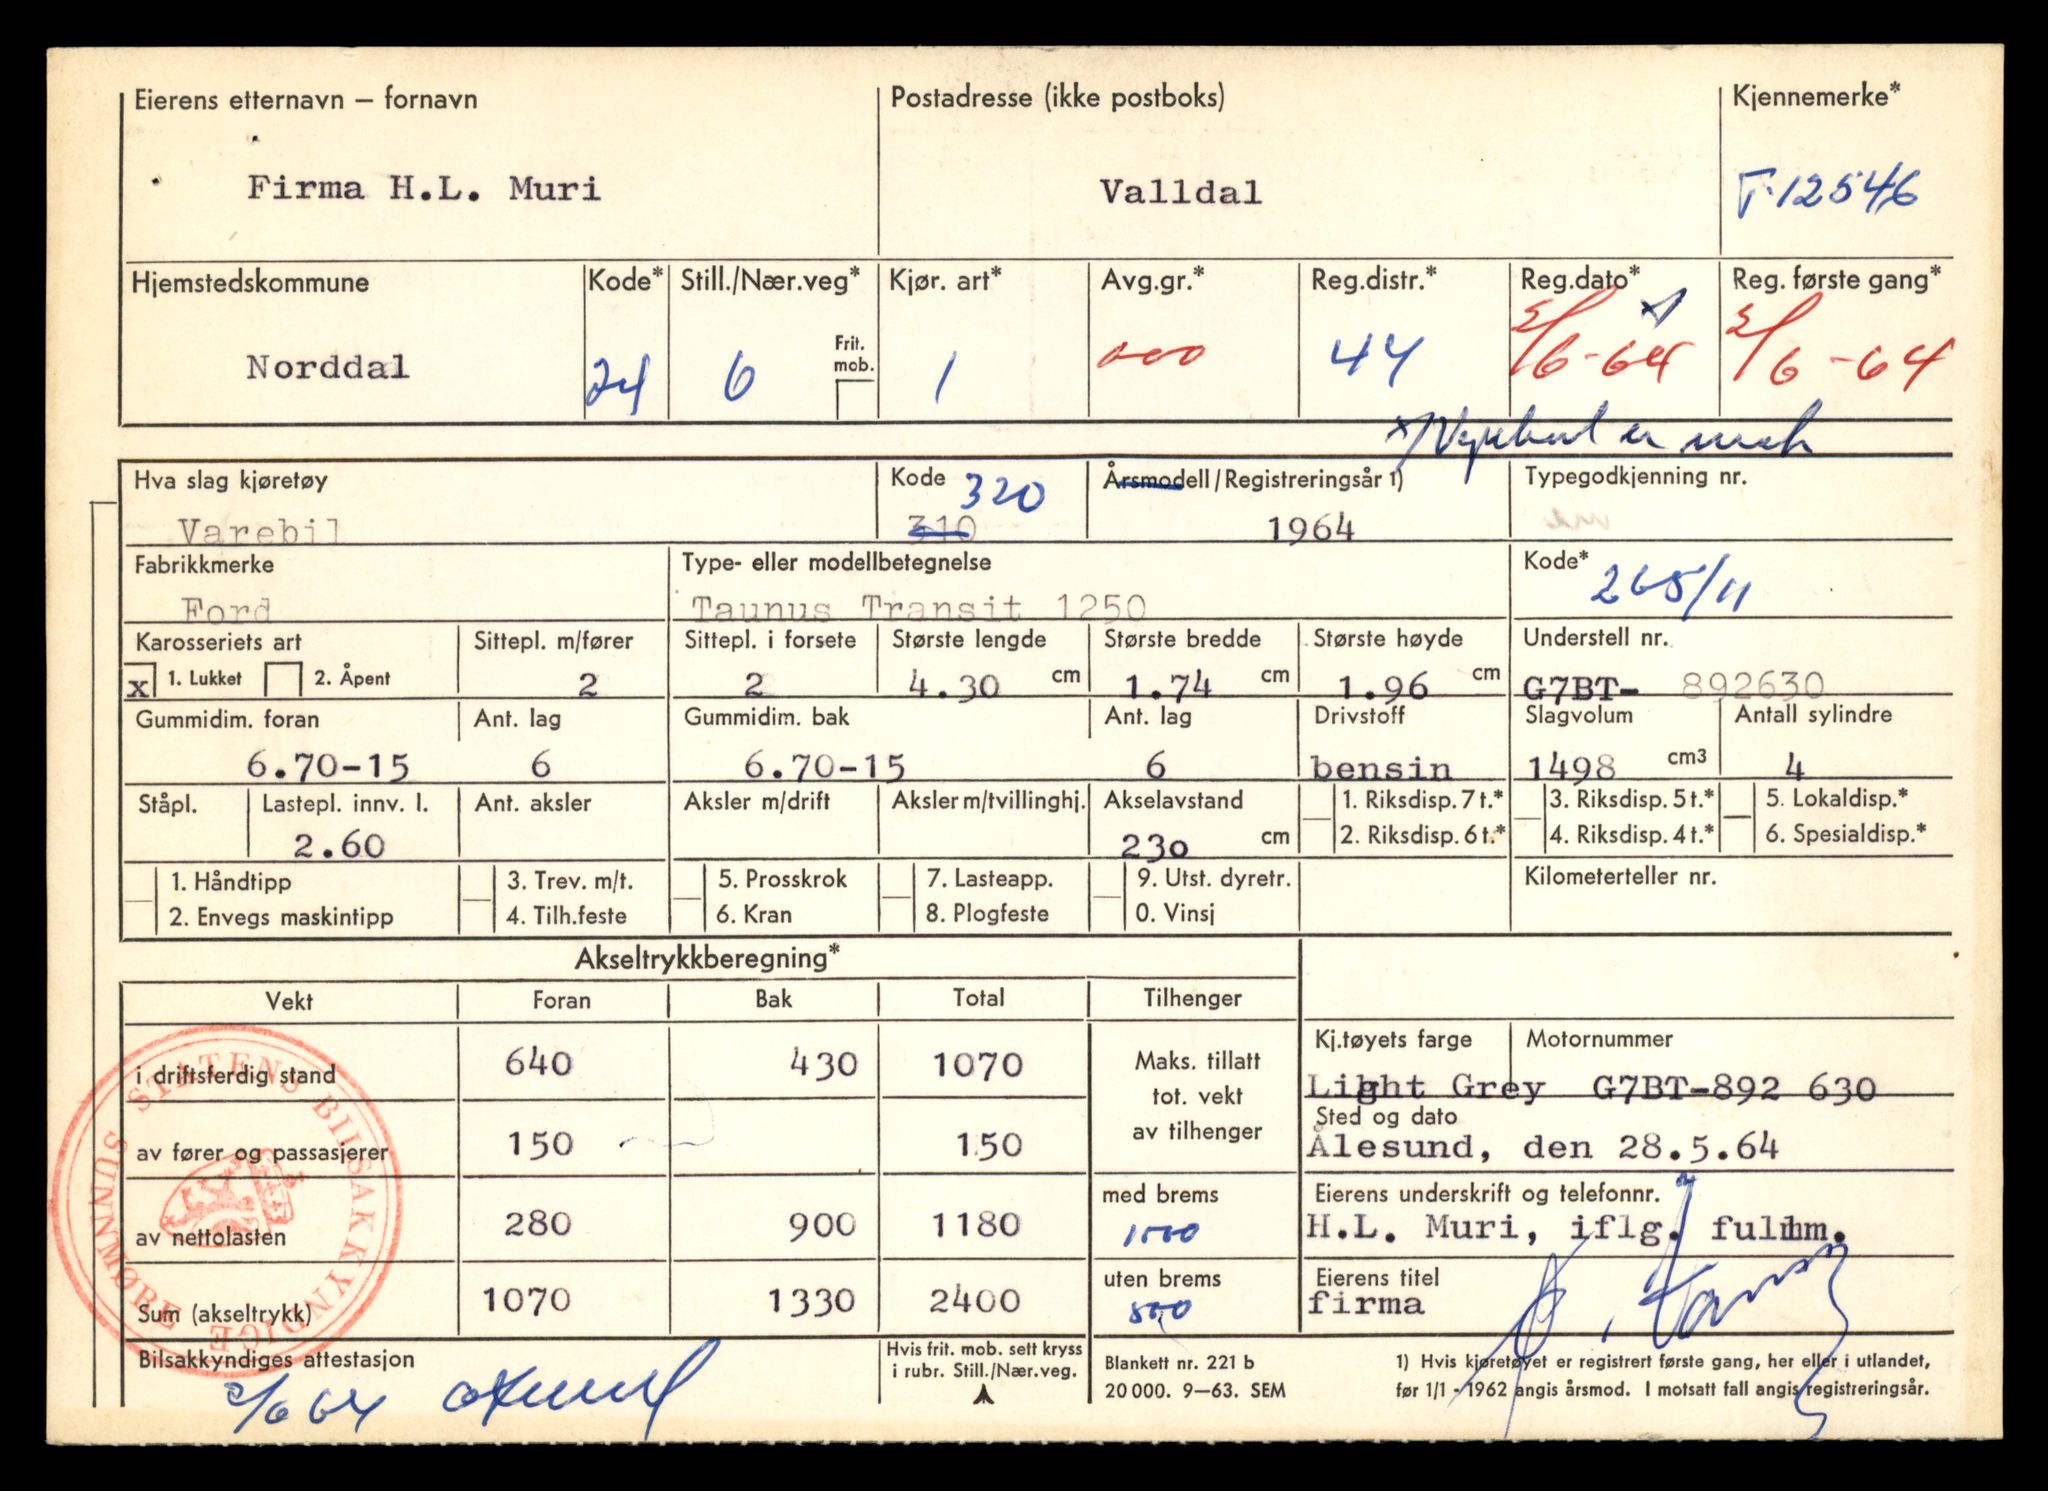 Eierens etternavn – fornavn Postadresse (ikke postboks) Kjennemerke*
Firma H.L. Muri Valldal T-12546
Hjemstedskommune Kode* Still./Nær.veg* Kjør. art* Avg.gr.* Reg.distr.* Reg.dato* Reg. første gang*
Frit. mob.
Norddal 24 6 1 000 44 2/6-64 2/6-64
er
Hva slag kjøretøy Kode Årsmodell/Registreringsår 1) Typegodkjenning nr.
320
Varebil 310 1964
Fabrikkmerke Type- eller modellbetegnelse Kode*
265/11
Ford Taunus Transit 1250
Karosseriets art Sittepl. m/fører Sittepl. i forsete Største lengde Største bredde Største høyde Understell nr.
x 1. Lukket 2. Åpent 2 2 4.30 cm 1.74 cm 1.96 cm G7BT- 892630
Gummidim. foran Ant. lag Gummidim. bak Ant. lag Drivstoff Slagvolum Antall sylindre
6.70-15 6 6.70-15 6 bensin 1498 cm3 4
Ståpl. Lastepl. innv. l. Ant. aksler Aksler m/drift Aksler m/tvillinghj. Akselavstand 1. Riksdisp. 7 t.* 3. Riksdisp. 5 t.* 5. Lokaldisp.*
2.60 230 cm 2. Riksdisp. 6 t.* 4. Riksdisp. 4 t.* 6. Spesialdisp.*
1. Håndtipp 3. Trev. m/t. 5. Prosskrok 7. Lasteapp. 9. Utst. dyretr. Kilometerteller nr.
2. Envegs maskintipp 4. Tilh.feste 6. Kran 8. Plogfeste 0. Vinsj
Akseltrykkberegning*
Vekt Foran Bak Total Tilhenger
Kj.tøyets farge Motornummer
i driftsferdig stand 640 430 1070 Maks. tillatt
tot. vekt
av tilhenger
Light Grey G7BT-892 630
Sted og dato
av fører og passasjerer 150 150
Ålesund, den 28.5.64
med brems Eierens underskrift og telefonnr.
av nettolasten 280 900 1180 1500
H.L. Muri, iflg. fullm.
uten brems Eierens titel
Sum (akseltrykk) 1070 1330 2400 500
firma
STATENS BILSAKKYNDIGE SUNNMØRE
Bilsakkyndiges attestasjon
2/6 64
Hvis frit. mob. sett kryss
i rubr. Still./Nær.veg.
Blankett nr. 221 b
20 000. 9–63. SEM
1) Hvis kjøretøyet er registrert første gang, her eller i utlandet,
før 1/1 - 1962 angis årsmod. I motsatt fall angis registreringsår.